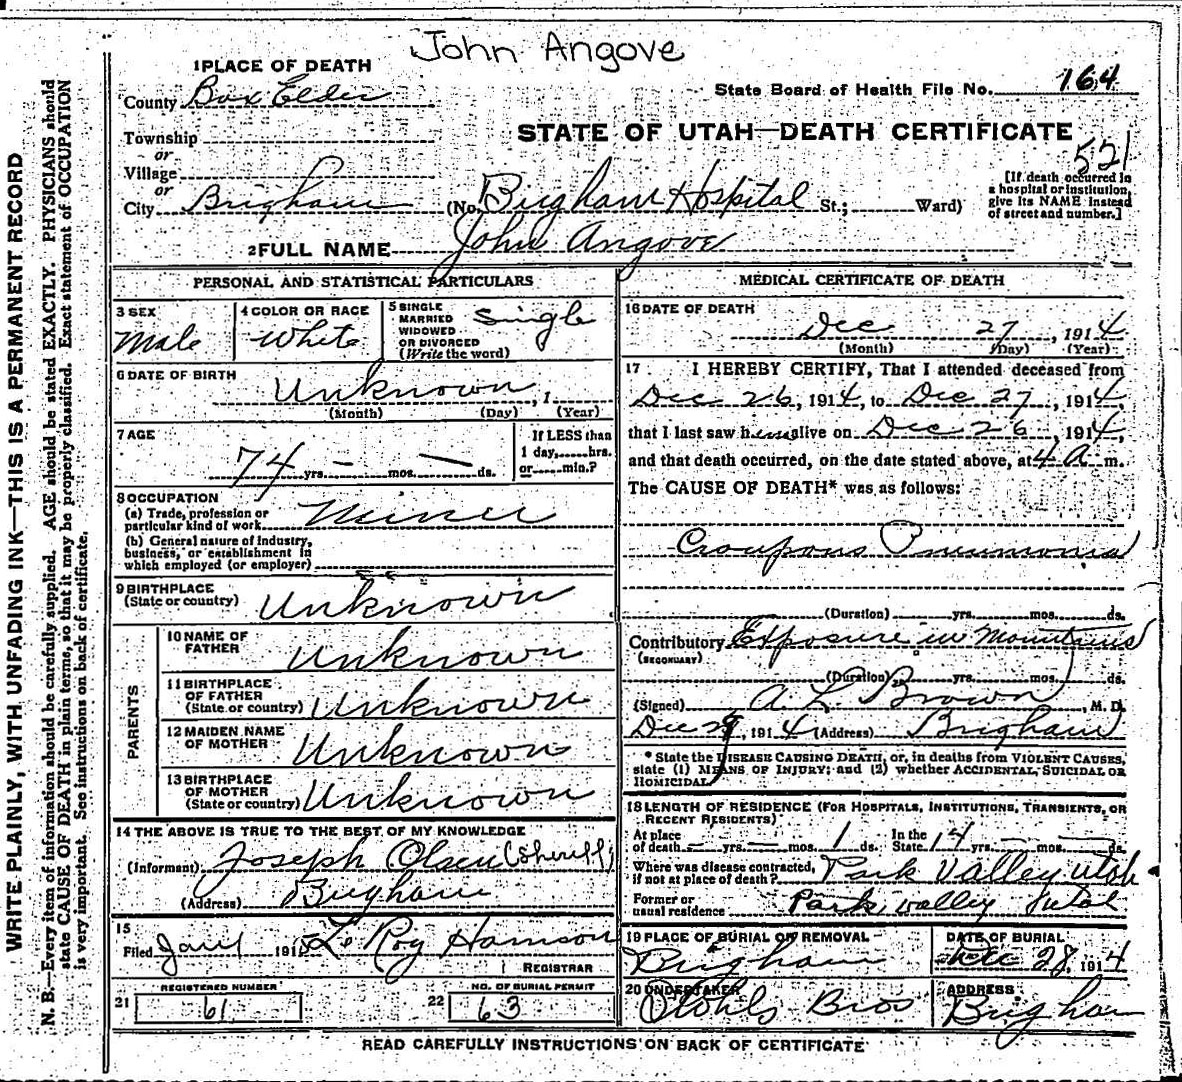 John Angove
1 PLACE OF DEATH
County Box Elder
State Board of Health File No. 164
Township
or
Village
or
City Brigham
STATE OF UTAH—DEATH CERTIFICATE
521
(No. Brigham Hospital St.; Ward)
[If death occurred in
a hospital or institution,
give its NAME instead
of street and number.]
2 FULL NAME John Angove
PERSONAL AND STATISTICAL PARTICULARS
3 SEX
Male
4 COLOR OR RACE
White
5 SINGLE
MARRIED
WIDOWED
OR DIVORCED
(Write the word)
Single
6 DATE OF BIRTH
Unknown, 1
(Month) (Day) (Year)
7 AGE
74 yrs. — mos. — ds.
If LESS than
1 day, hrs.
or min.?
8 OCCUPATION
(a) Trade, profession or
particular kind of work Miner
(b) General nature of industry,
business, or establishment in
which employed (or employer)
9 BIRTHPLACE
(State or country) Unknown
PARENTS
10 NAME OF
FATHER Unknown
11 BIRTHPLACE
OF FATHER
(State or country) Unknown
12 MAIDEN NAME
OF MOTHER Unknown
13 BIRTHPLACE
OF MOTHER
(State or country) Unknown
14 THE ABOVE IS TRUE TO THE BEST OF MY KNOWLEDGE
(Informant) Joseph Olsen (Sheriff)
(Address) Brigham
15
Filed Jan 1 1915 Le Roy Harrison
REGISTRAR
REGISTERED NUMBER
21 61
NO. OF BURIAL PERMIT
22 63
MEDICAL CERTIFICATE OF DEATH
16 DATE OF DEATH
Dec 27, 1914
(Month) (Day) (Year)
17 I HEREBY CERTIFY, That I attended deceased from
Dec 26, 1914, to Dec 27, 1914,
that I last saw him alive on Dec 26, 1914,
and that death occurred, on the date stated above, at 4 A m.
The CAUSE OF DEATH* was as follows:
Croupous Pneumonia
(Duration) yrs. mos. ds.
Contributory Exposure in Mountains
(SECONDARY)
(Duration) yrs. mos. ds.
(Signed) A. L. Brown, M. D.
Dec 29, 1914 (Address) Brigham
* State the DISEASE CAUSING DEATH, or, in deaths from VIOLENT CAUSES,
state (1) MEANS OF INJURY; and (2) whether ACCIDENTAL, SUICIDAL OR
HOMICIDAL
18 LENGTH OF RESIDENCE (FOR HOSPITALS, INSTITUTIONS, TRANSIENTS, OR
RECENT RESIDENTS)
At place
of death — yrs. — mos. 1 ds.
In the
State 14 yrs. — mos. — ds.
Where was disease contracted,
if not at place of death? Park Valley Utah
Former or
usual residence Park Valley Utah
19 PLACE OF BURIAL OR REMOVAL
Brigham
DATE OF BURIAL
Dec 28, 1914
20 UNDERTAKER
Stohls Bros
ADDRESS
Brigham
READ CAREFULLY INSTRUCTIONS ON BACK OF CERTIFICATE
WRITE PLAINLY, WITH UNFADING INK—THIS IS A PERMANENT RECORD
N. B.—Every item of information should be carefully supplied. AGE should be stated EXACTLY. PHYSICIANS should
state CAUSE OF DEATH in plain terms, so that it may be properly classified. Exact statement of OCCUPATION
is very important. See instructions on back of certificate.